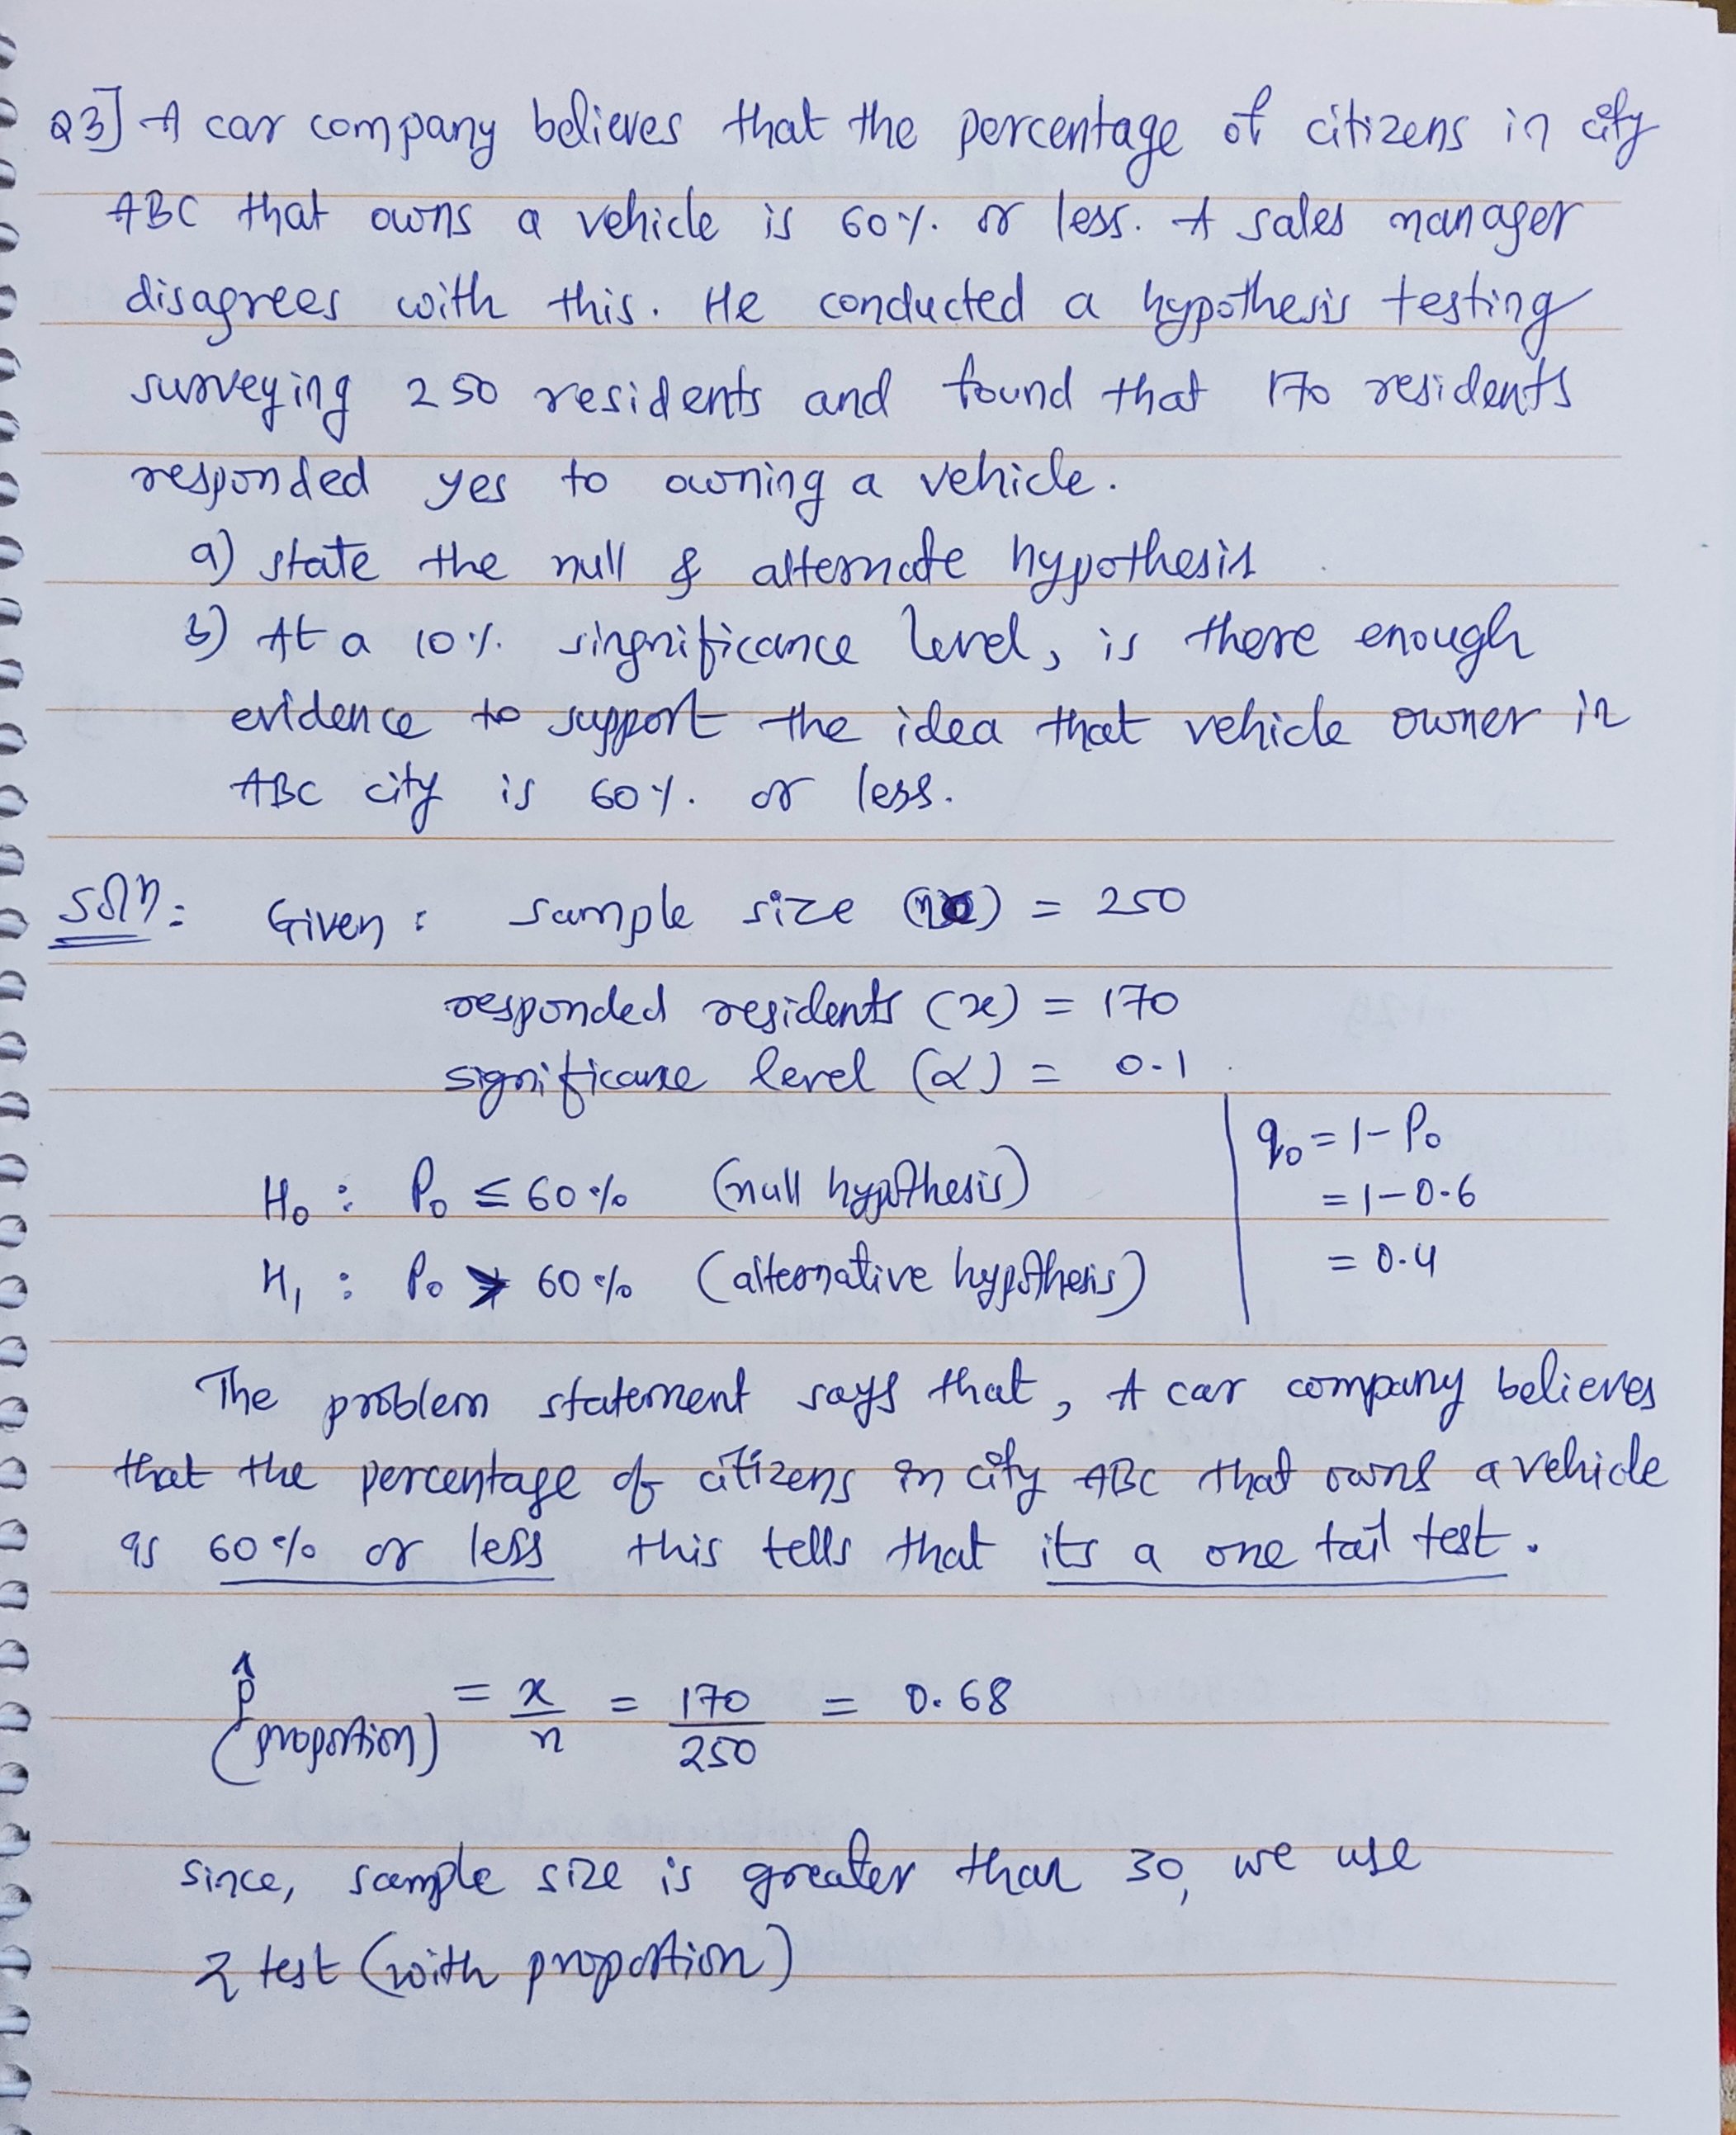 Q3] A car company believes that the percentage of citizens in city
ABC that owns a vehicle is 60%. or less. A sales manager
disagrees with this. He conducted a hypothesis testing
surveying 250 residents and found that 170 residents
responded yes to owning a vehicle.
a) state the null & alternate hypothesis
b) At a 10%. singnificance level, is there enough
evidence to support the idea that vehicle owner in
ABC city is 60%. or less.
Soln: Given : sample size (n) = 250
responded residents (x) = 170
significane level (α) = 0.1
H₀ : P₀ ≤ 60% (null hypothesis)
H₁ : P₀ > 60% (alternative hypothesis)
q₀ = 1 - P₀
= 1 - 0.6
= 0.4
The problem statement says that, A car company believes
that the percentage of citizens in city ABC that owns a vehicle
is 60% or less this tells that its a one tail test.
p̂ (proportion) = x/n = 170/250 = 0.68
since, sample size is greater than 30, we use
z test (with proportion)